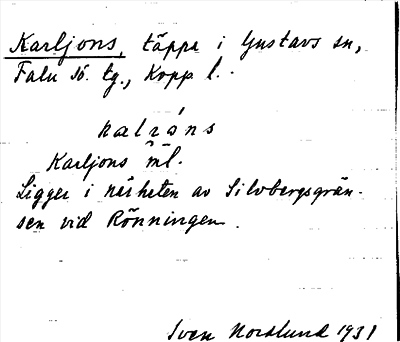 Karljons, täppa i Gustavs sn,
Falu sö. tg., Kopp l.
kalrȧns
Karljons ml.
Ligger i närheten av Silvbergsgrän-
sen vid Rönningen.
Sven Norslund 1931